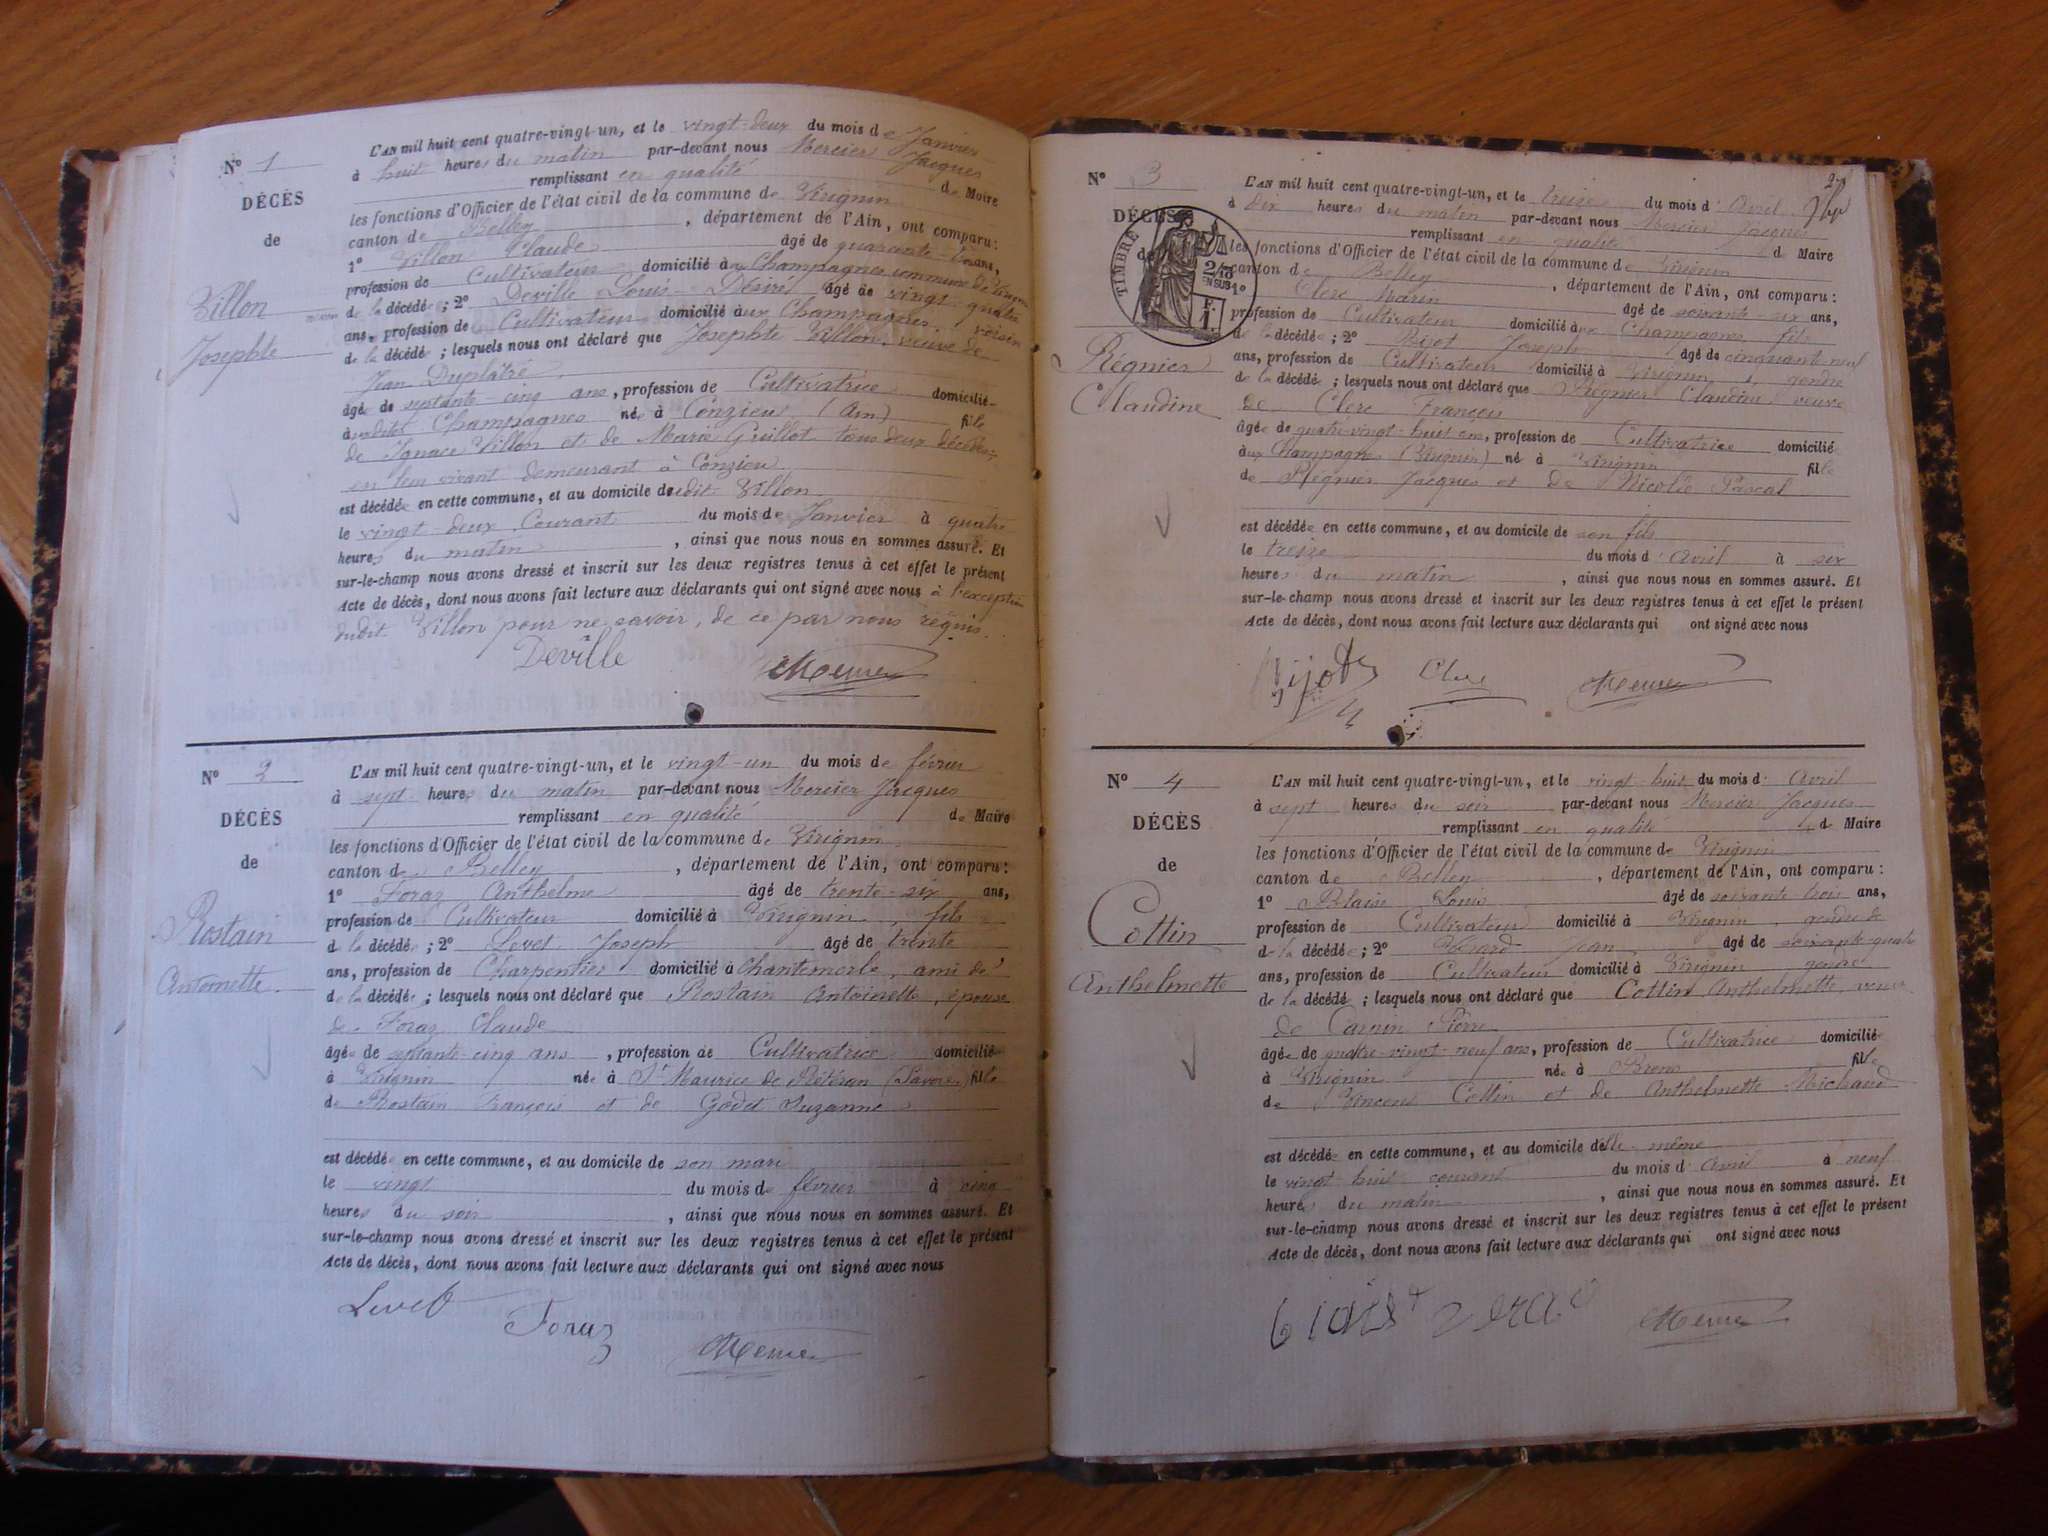 N° 1
DÉCÈS
de
Villon
Josephte
L'AN mil huit cent quatre-vingt-un, et le vingt-deux du mois de Janvier
à huit heures du matin par-devant nous Mercier Jacques
remplissant en qualité de Maire
les fonctions d'Officier de l'état civil de la commune de Virignin
canton de Belley, département de l'Ain, ont comparu:
1° Villon Claude âgé de quarante-trois ans,
profession de Cultivateur domicilié aux Champagnes commune de Virignin
de la décédée; 2° Deville Louis Désiré âgé de vingt-quatre
ans, profession de Cultivateur domicilié aux Champagnes, voisin
de la décédée; lesquels nous ont déclaré que Josephte Villon, veuve de
Jean Duplâtre,
âgée de septante-cinq ans, profession de Cultivatrice domiciliée
auxdites Champagnes née à Conzieu (Ain) fille
de Ignace Villon et de Marie Guillot tous deux décédés,
en leur vivant demeurant à Conzieu
est décédée en cette commune, et au domicile dudit Villon
le vingt-deux Courant du mois de Janvier à quatre
heures du matin, ainsi que nous nous en sommes assuré. Et
sur-le-champ nous avons dressé et inscrit sur les deux registres tenus à cet effet le présent
Acte de décès, dont nous avons fait lecture aux déclarants qui ont signé avec nous à l'exception
dudit Villon pour ne savoir, de ce par nous réquis.
Deville Mercier
N° 2
DÉCÈS
de
Rostain
Antoinette
L'AN mil huit cent quatre-vingt-un, et le vingt-un du mois de février
à sept heures du matin par-devant nous Mercier Jacques
remplissant en qualité de Maire
les fonctions d'Officier de l'état civil de la commune de Virignin
canton de Belley, département de l'Ain, ont comparu:
1° Foraz Anthelme âgé de trente-six ans,
profession de Cultivateur domicilié à Virignin, fils
de la décédée; 2° Levet Joseph âgé de trente
ans, profession de Charpentier domicilié à Chantemerle, ami de
de la décédée; lesquels nous ont déclaré que Rostain Antoinette, épouse
de Foraz Claude
âgée de septante-cinq ans, profession de Cultivatrice domiciliée
à Virignin née à St Maurice de Rotéran (Savoie) fille
de Rostain François et de Godet Suzanne
est décédée en cette commune, et au domicile de son mari
le vingt du mois de février à cinq
heures du soir, ainsi que nous nous en sommes assuré. Et
sur-le-champ nous avons dressé et inscrit sur les deux registres tenus à cet effet le présent
Acte de décès, dont nous avons fait lecture aux déclarants qui ont signé avec nous
Levet Foraz Mercier
2
N° 3
DÉCÈS
de
TIMBRE
2/10
EN SUS
F.
1.
Régnier
Claudine
L'AN mil huit cent quatre-vingt-un, et le treize du mois d'Avril
à dix heures du matin par-devant nous Mercier Jacques
remplissant en qualité de Maire
les fonctions d'Officier de l'état civil de la commune de Virignin
canton de Belley, département de l'Ain, ont comparu:
1° Clerc Marin âgé de soixante-six ans,
profession de Cultivateur domicilié aux Champagnes, fils
de la décédée; 2° Bijot Joseph âgé de cinquante-neuf
ans, profession de Cultivateur domicilié à Virignin, gendre
de la décédée; lesquels nous ont déclaré que Régnier Claudine, veuve
de Clerc François
âgée de quatre-vingt-huit ans, profession de Cultivatrice domiciliée
aux Champagnes (Virignin) née à Virignin fille
de Régnier Jacques et de Nicolle Pascal
est décédée en cette commune, et au domicile de son fils
le treize du mois d'Avril à six
heures du matin, ainsi que nous nous en sommes assuré. Et
sur-le-champ nous avons dressé et inscrit sur les deux registres tenus à cet effet le présent
Acte de décès, dont nous avons fait lecture aux déclarants qui ont signé avec nous
Bijot Clerc Mercier
N° 4
DÉCÈS
de
Cottin
Anthelmette
L'AN mil huit cent quatre-vingt-un, et le vingt-huit du mois d'Avril
à sept heures du soir par-devant nous Mercier Jacques
remplissant en qualité de Maire
les fonctions d'Officier de l'état civil de la commune de Virignin
canton de Belley, département de l'Ain, ont comparu:
1° Blaise Louis âgé de soixante-trois ans,
profession de Cultivateur domicilié à Virignin, gendre de
de la décédée; 2° Vérard Jean âgé de soixante-quatre
ans, profession de Cultivateur domicilié à Virignin gendre
de la décédée; lesquels nous ont déclaré que Cottin Anthelmette, veuve
de Pierre
âgée de quatre-vingt-neuf ans, profession de Cultivatrice domiciliée
à Virignin née à Brens fille
de Vincent Cottin et de Anthelmette Michaud
est décédée en cette commune, et au domicile d'elle-même
le vingt-huit courant du mois d'Avril à neuf
heures du matin, ainsi que nous nous en sommes assuré. Et
sur-le-champ nous avons dressé et inscrit sur les deux registres tenus à cet effet le présent
Acte de décès, dont nous avons fait lecture aux déclarants qui ont signé avec nous
Mercier